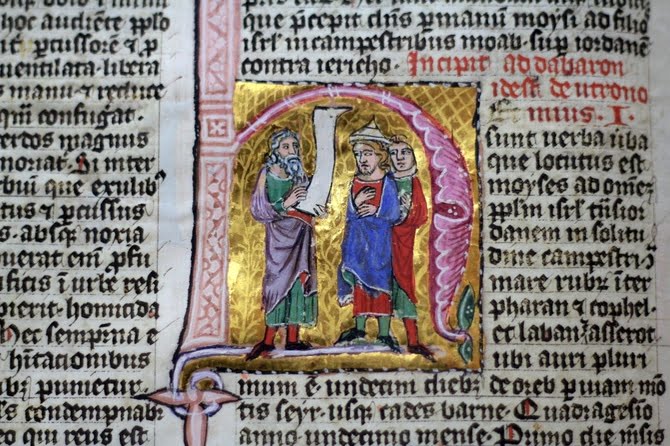 hoc audiēte pplo
t. percussorē ⁊ p
uentilata. libera
s manu. ⁊ reduce
quā confugat.
erdos magnus
moriat. Si inter
rbiū que exulib'
tus ⁊ percussus
absq; noxia
uerat enī
ificis ī urbe resi
pierit. homicida
hec sempitna e
hitacionibus
punietur.
s condempnabr
eo qui reus est
que p̄cepit dn̄s p manū moysi ad filio
isrl in campestribus moab. sup iordane
contra iericho. Incipit addabaron
idest deutrono
mius. I.
sunt uerba
que locutus est
moyses ad omē
pplm isrl tn̄sior
danem in solitu
dine campestri
mare rubr̄ īter
pharan ⁊ tophel.
et laban ⁊ aserot
ubi auri pluri
mum ē undecim dieb; de oreb p uiam mō
tis seyr usq; cades barne. Quadragesio
anno undecimo mense.